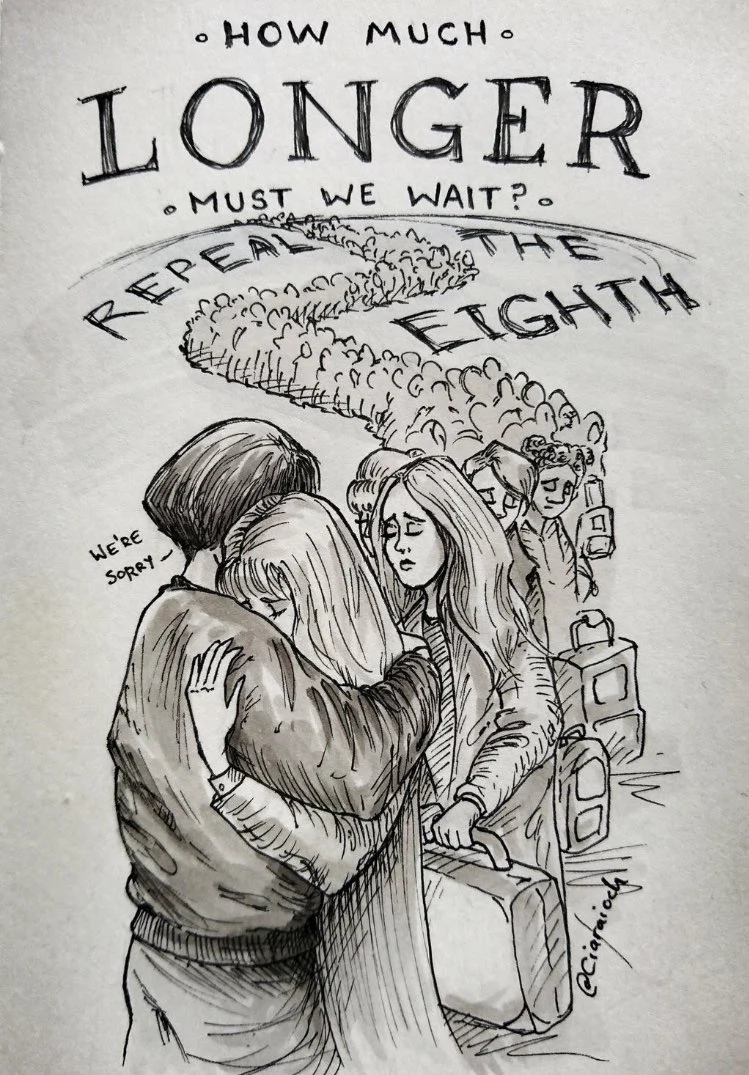 HOW MUCH
LONGER
MUST WE WAIT?
REPEAL THE
EIGHTH
WE'RE
SORRY
@Ciaraioch